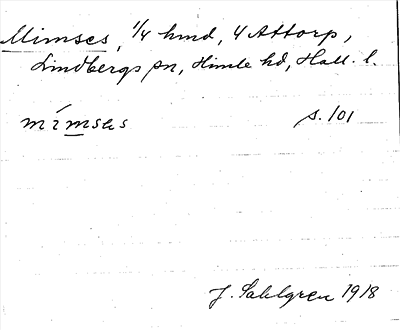 Mimses, 1/4 hmd, 4 Attorp,
Lindbergs sn, Himle hd, Hall. l.
mímsɛs s. 101
J. Sahlgren 1918